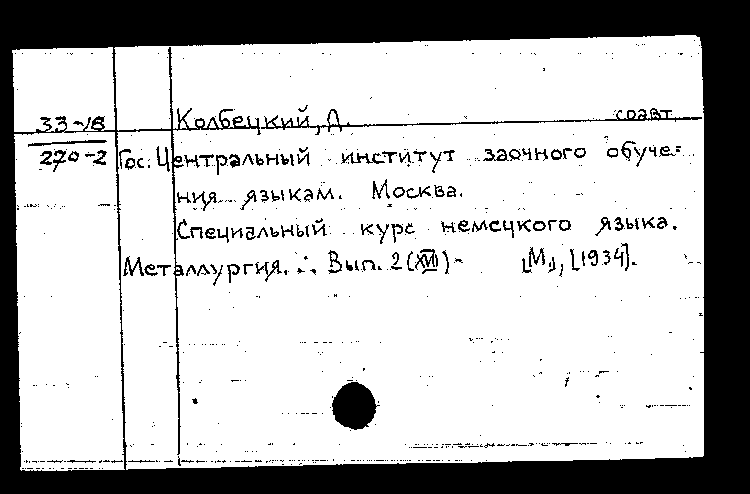 33-18 Колбецкий, Д. соавт.
270-2 Гос. Центральный институт заочного обуче=
ния языкам. Москва.
Специальный курс немецкого языка.
Металлургия. ∴ Вып. 2 (XVI) - [М.], [1934].